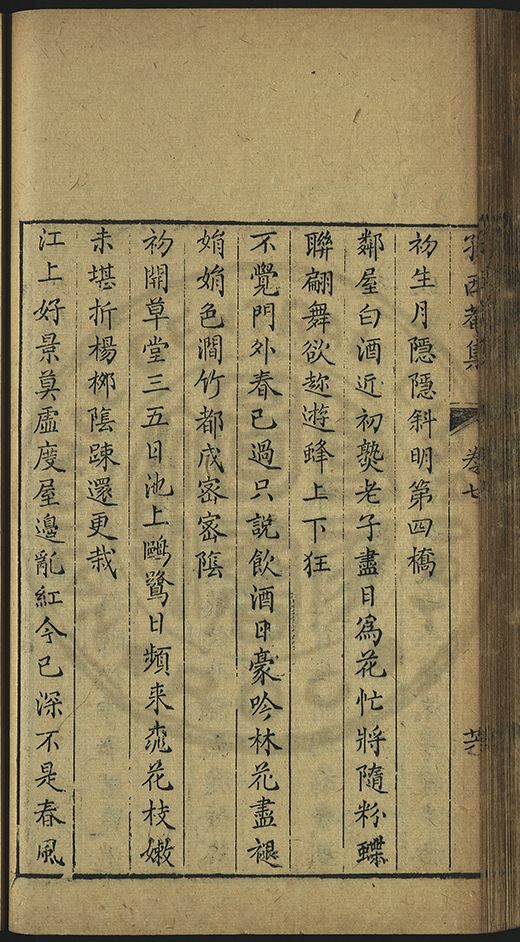 孫西菴集 卷七
初生月隱隱斜明第四橋
鄰屋白酒近初熟老子盡日爲花忙將隨粉蝶
聯翩舞欲趂遊蜂上下狂
不覺門外春已過只說飲酒日豪吟林花盡褪
娟娟色澗竹都成密密陰
初開草堂三五日池上鷗鷺日頻来桃花枝嫩
未堪折楊栁陰踈還更栽
江上好景莫虛度屋邊亂紅今已深不是春風